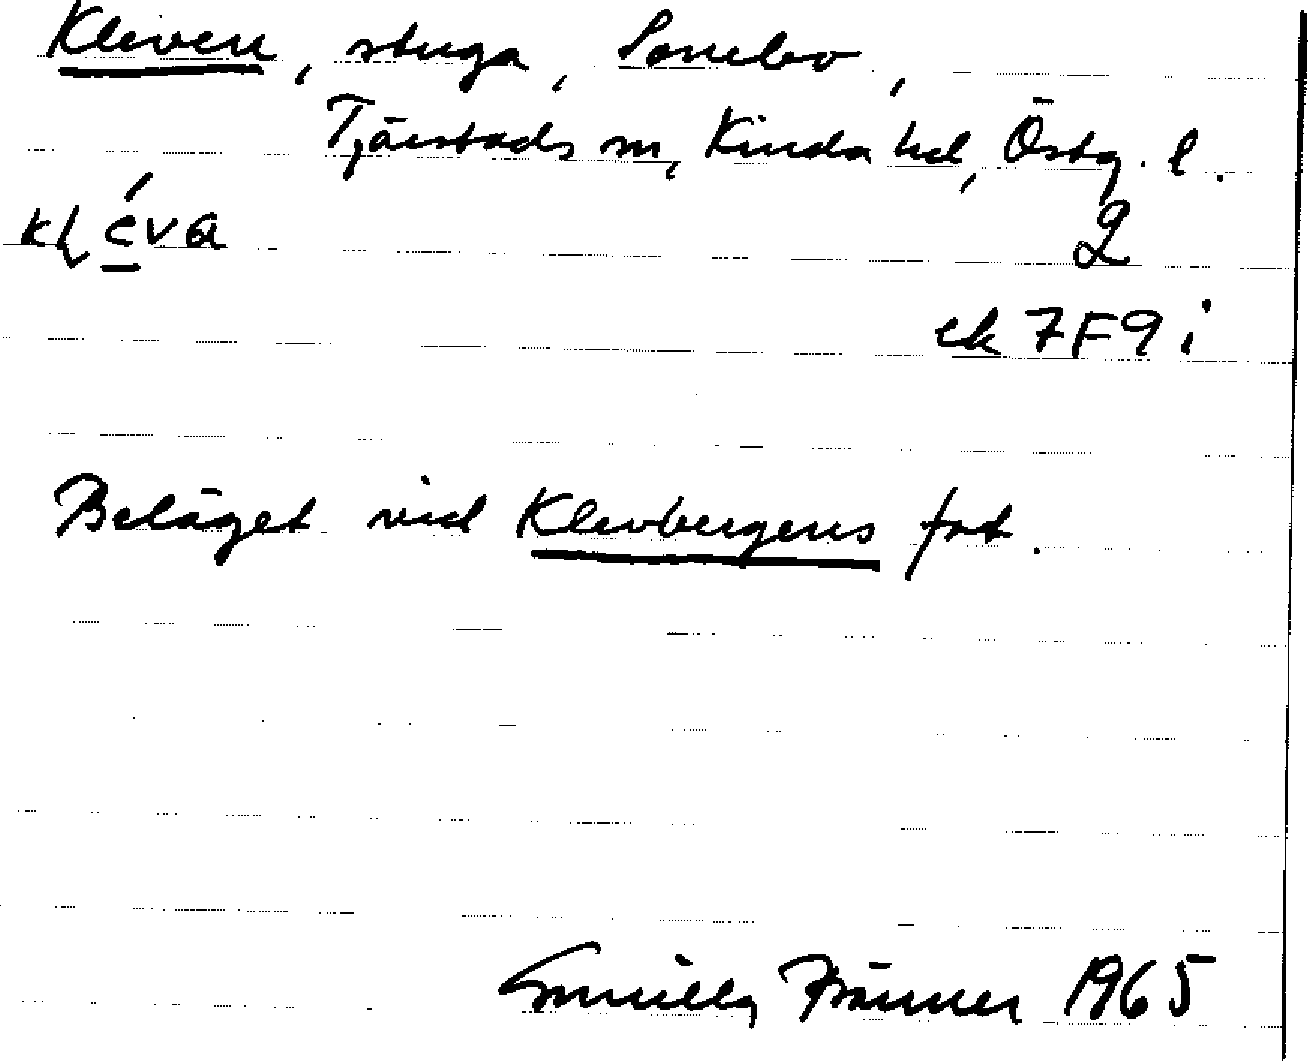 Kleven, stuga, Sonebo,
Tjärstads sn, Kinda hd, Östg. l.
klè̱va 2
ek 7F9i
Beläget vid Klevbergens fot.
Gunilla Främer 1965